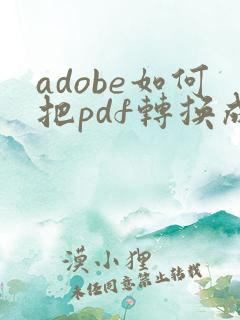 adobe如何
把pdf轉換成
漠小狸
未任同意禁止转载